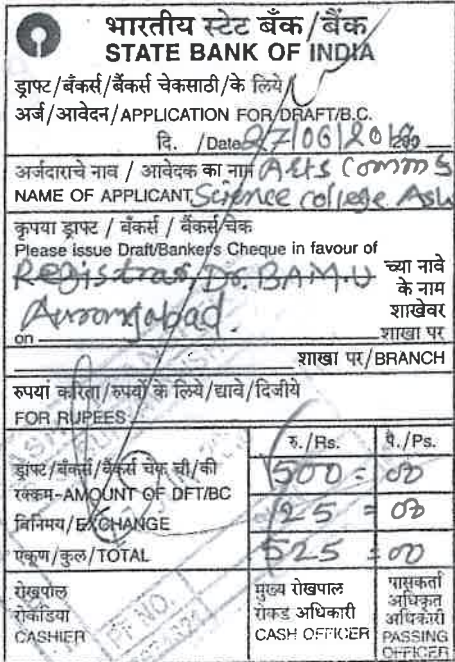 भारतीय स्टेट बँक/बैंक
STATE BANK OF INDIA
ड्राफ्ट/बँकर्स/बैंकर्स चेकसाठी/के लिये
अर्ज/आवेदन/APPLICATION FOR DRAFT/B.C.
दि. /Date 27/06/2018
अर्जदाराचे नाव / आवेदक का नाम Arts Comm &
NAME OF APPLICANT Science college Ash
कृपया ड्राफ्ट / बँकर्स / बैंकर्स चेक
Please issue Draft/Banker's Cheque in favour of
Registrar, Dr. BAM.U च्या नावे
के नाम
Aurangabad. शाखेवर
on शाखा पर
शाखा पर/BRANCH
रुपयां करिता/रुपयों के लिये/द्यावे/दिजीये
FOR RUPEES
रु./Rs. पै./Ps.
ड्रांफ्ट/बँकर्स/बैंकर्स चेक ची/की
रक्कम-AMOUNT OF DFT/BC 500 = 00
विनिमय/EXCHANGE 25 = 00
एकूण/कुल/TOTAL 525 = 00
रोखपाल
रोकडिया
CASHIER
मुख्य रोखपाल
रोकड अधिकारी
CASH OFFICER
पासकर्ता
अधिकृत
अधिकारी
PASSING
OFFICER